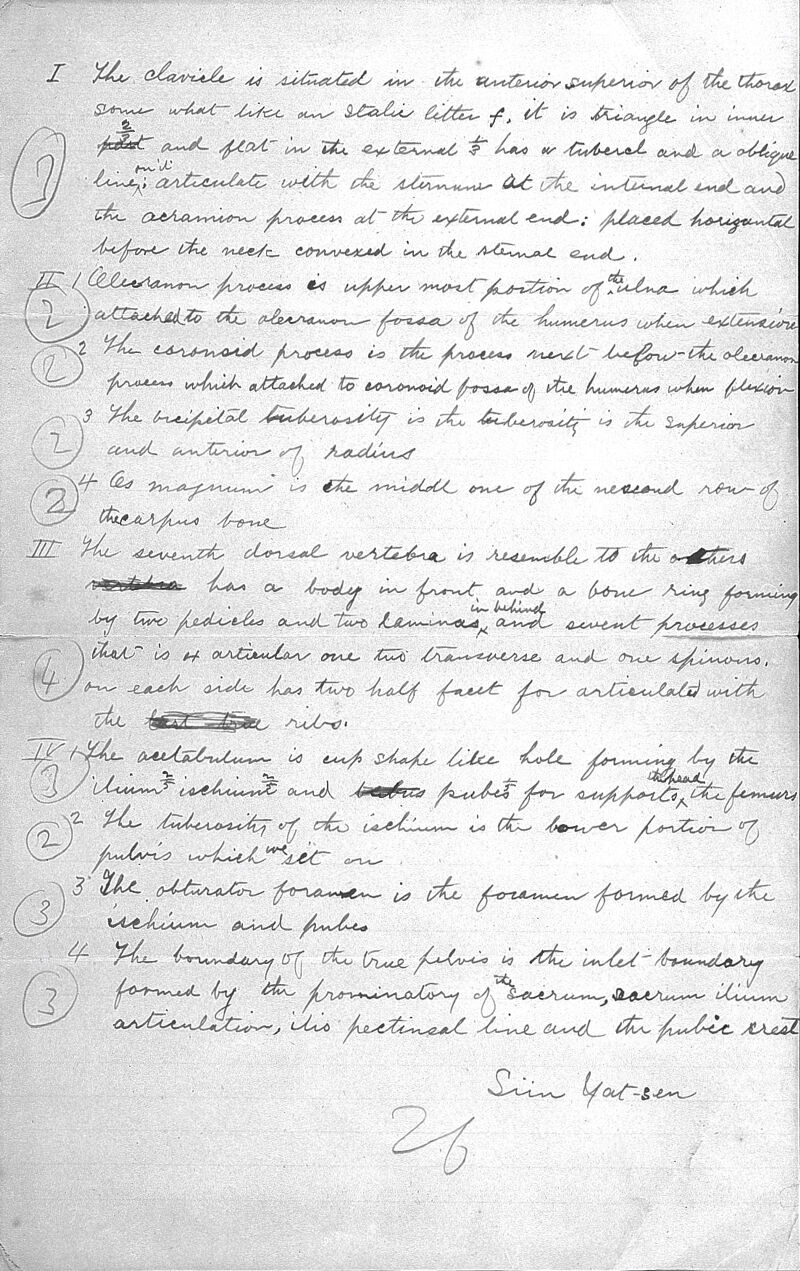 I The clavicle is situated in the anterior superior of the thorax
some what like an Italic litter f, it is triangle in inner
2/3 and flat in the external 1/3 has a tubercl and a oblique
3
line, on it articulate with the sternum at the internal end and
the acramion process at the external end: placed horizontal
before the neck convexed in the sternal end.
II 1 Olecranon process is upper most portion of the ulna which
2
attached to the olecranon fossa of the humerus when extensiore
2 The coronoid process is the process next below the olecranon
2
process which attached to coronoid fossa of the humerus when flexion
3 The bicipetal tuberosity is the tuberosity is the superior
2
and anterior of radius
4 Os magnum is the middl one of the second row of
2
the carpus bone
III The seventh dorsal vertebra is resemble to the others
vertebra has a body in front and a bone ring forming
by two pedicles and two laminas, in behind and sevent processes
that is 4 articular one two transverse and one spinous.
4
on each side has two half facet for articulated with
the ribs.
IV 1 The acetabulum is cup shape like hole forming by the
3
ilium 2/5 ischium 2/5 and pubes 1/5 for supports the head the femurs
2 The tuberosity of the ischium is the lower portion of
2
pulvis which we sit on
3 The obturator foramen is the foramen formed by the
3
ischium and pubes
4 The boundary of the true pelvis is the inlet boundary
3
formed by the prominatory of the sacrum, sacrum ilium
articulation, ilio pectinsal line and the pubic crest
Sün Yat-sen
26